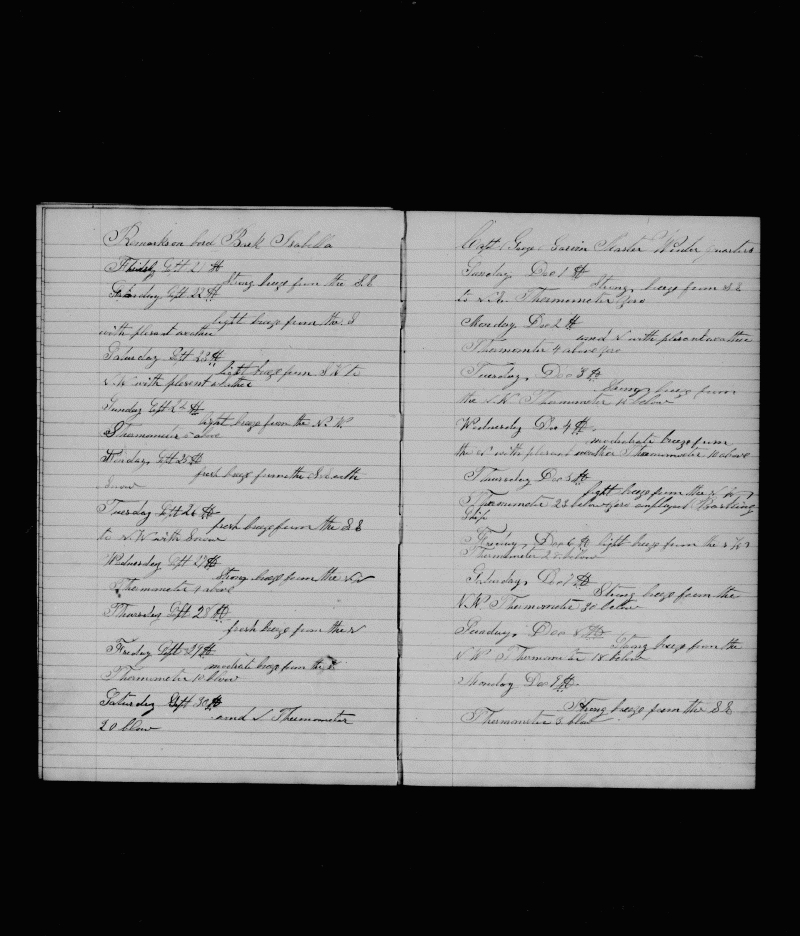 Remarks on bord Bark Isabella
Friday Sept 21 th
Strong breeze from the S.E
Saturday Sept 22 th
light breeze from the S
with plesent weather
Saturday Sept 23 th
light breeze from S W to
N.W with plesent weather
Sunday Sept 24 th
light breeze from the N. W.
Thermometer 5 above
Monday, Sept 25 th
fresh breeze from the S.E with
Snow
Tuesday Sept 26 th
fresh breeze from the S E
to N W with Snow
Wednesday Sept 27 th
Strong breeze from the N
Thermometer 4 above
Thursday Sept 28 th
fresh breeze from the N
Friday Sept 29 th
moderate breeze from the
Thermometer 10 blow
Saturday Sept 30 th
and N Thermometer
20 blow
Capt George Master Winter quarters
Sunday Dec 1 th
Strong breeze from S E
to N.E. Thermometer Zero
Monday Dec 2 th
and N with plesent weather
Thermometer 4 above Zero
Tuesday, Dec 3 th
Strong breeze from
the N.W. Thermometer 10 below
Wednesday Dec 4 th
moderate breeze from
the N with plesent weather Thermometer 10 above
Thursday Dec 5 th
light breeze from the N W
Thermometer 28 below Zero employed Banking
Ship
Friday, Dec 6 th light breeze from the
Thermometer 25 below
Saturday, Dec 7 th
Strong breeze from the
N.W. Thermometer 30 below
Sunday, Dec 8 th
Strong breeze from the
N W. Thermometer 18 below
Monday Dec 9 th
Strong breeze from the S E
Thermometer 3 blow